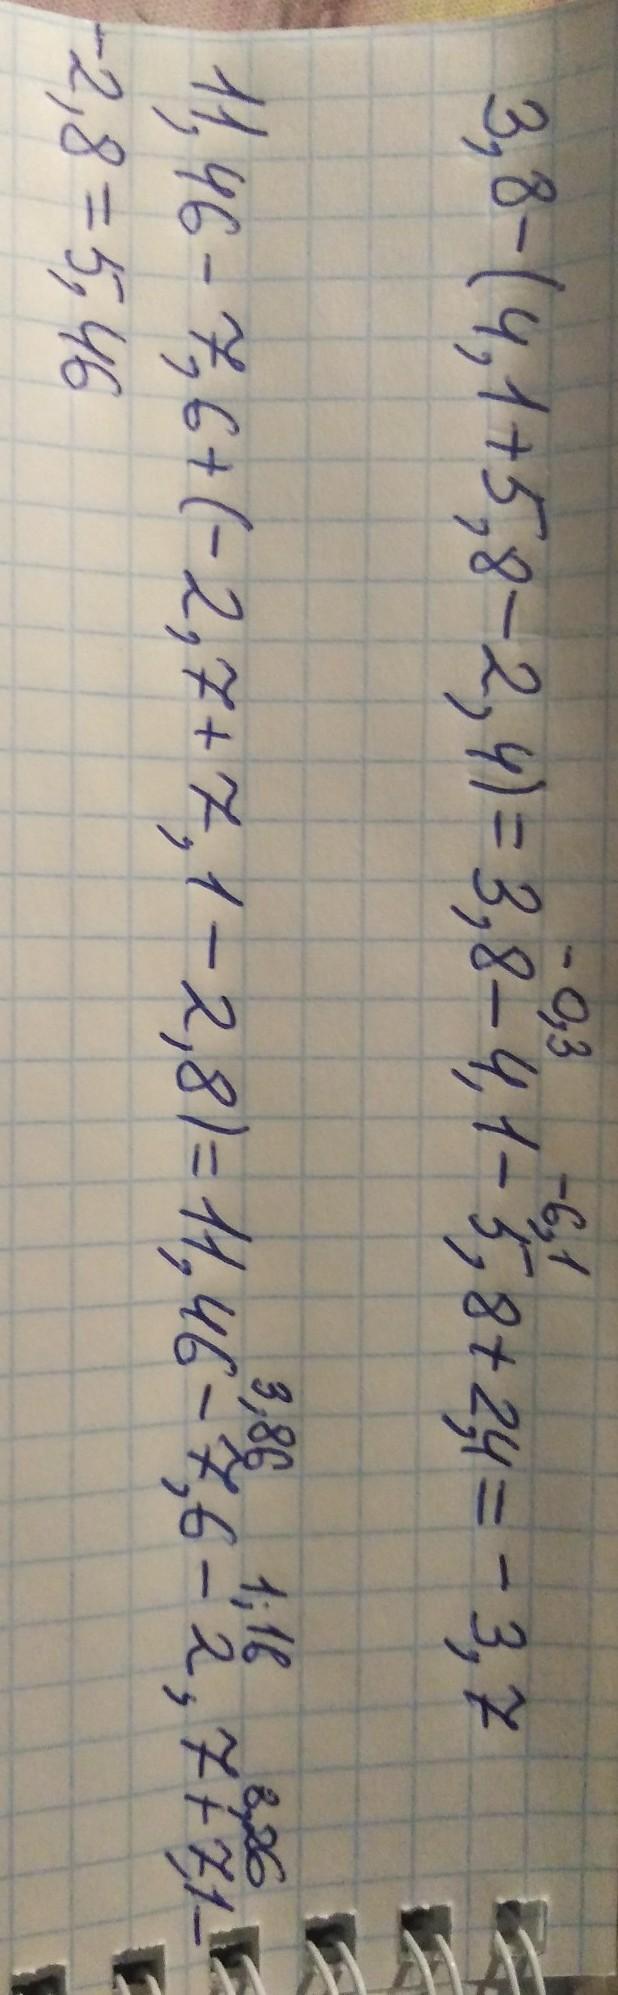 -0,3 -6,1
3,8-(4,1+5,8-2,4)=3,8-4,1-5,8+2,4=-3,7
3,86 1,16 8,26
11,46-7,6+(-2,7+7,1-2,8)=11,46-7,6-2,7+7,1-
-2,8=5,46